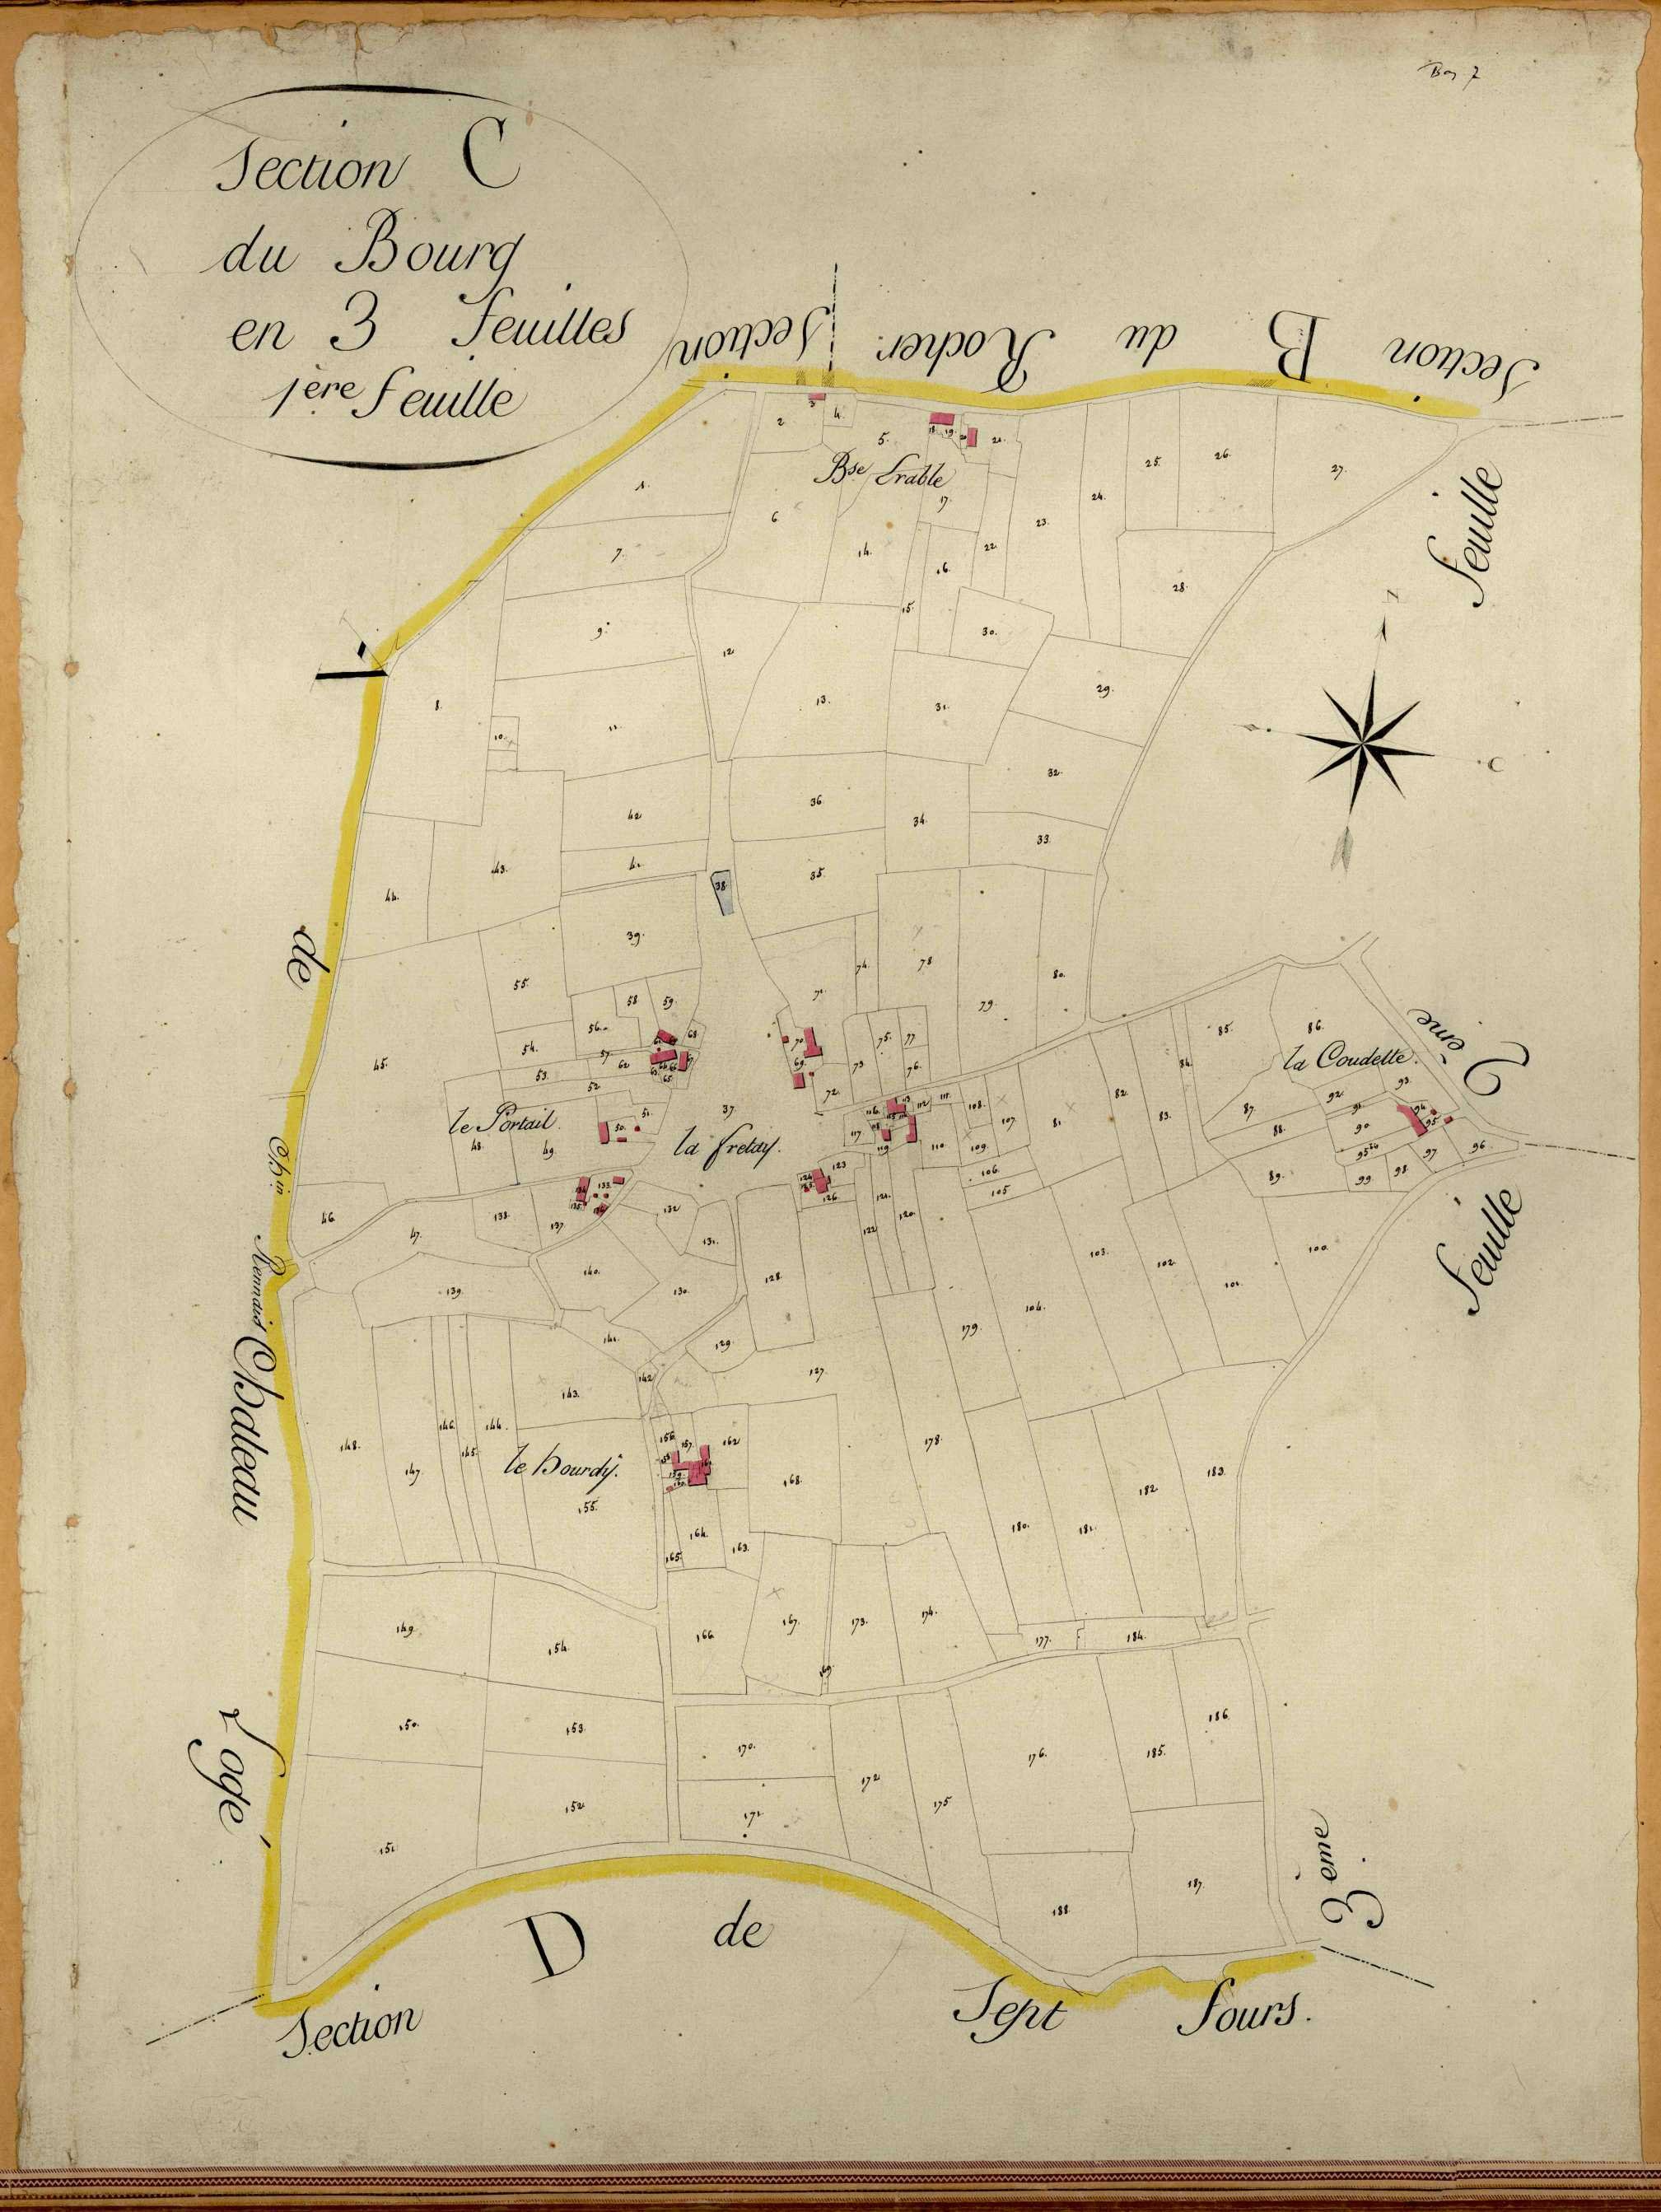 Section C
du Bourg
en 3 feuilles
1ère feuille
Section B du Rocher.
Section
de
Ch.in
Rennais
Chateau
Logé
Section D de Sept fours.
feuille
2 ème
feuille
3 ème
Bse Erable
la Coudette.
le Portail.
la fretay.
1.
2
4.
5.
6
7.
8.
9.
10.
11.
12.
13.
14.
15.
16.
17.
18.
19.
20
21.
22.
23.
24.
25.
26.
27.
28.
29.
30.
31.
32.
33.
34.
35.
36
37.
38.
39.
41.
42
43.
44.
45.
46.
47.
48.
49.
50.
51.
52
53.
54.
55.
56.
57.
58.
59.
62
68
65.
69.
70.
71.
72.
73
74.
75.
76.
77
78
79.
80.
81.
82.
83.
84.
85.
86.
87.
88.
89.
90
91.
92.
93.
94.
95
95 bis
96.
97
98.
99
100.
101.
102.
103.
104.
105
106.
107
108.
109.
110
111.
112
113.
116.
117
118
119
120.
121.
122
123
124
126
127.
128.
129.
130.
131.
132
133
137.
138.
139.
140.
141.
142
143.
144.
145.
146.
147
148.
149.
150.
151.
152
153.
154.
155.
156
157.
162
163.
164.
165.
166
167.
168.
169
170.
171.
172
173.
174.
175
176.
177.
178.
179.
180.
181.
182
183.
184.
185.
186
187.
188